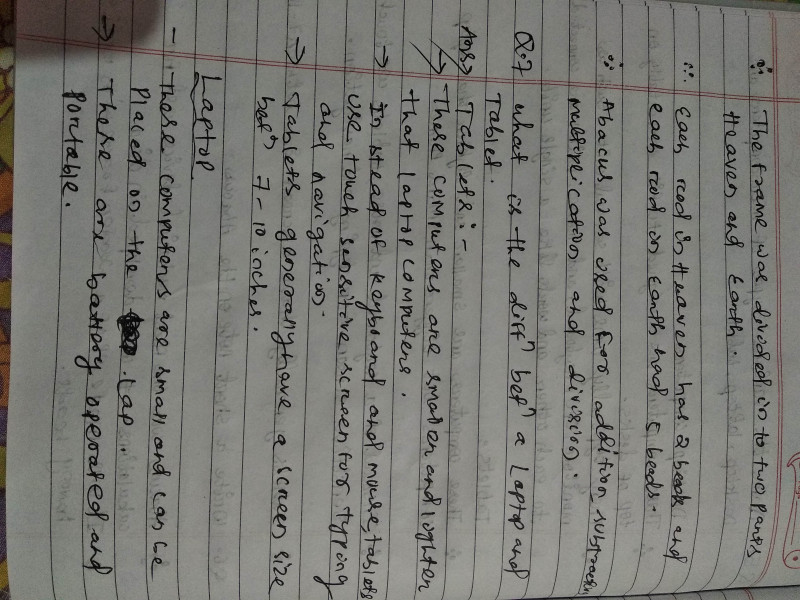 ∴ The frame was divided in to two parts
Heaven and Earth.
∴ Each rod in Heaven has 2 beads and
each rod in Earth had 5 beads.
∴ Abacus was used for addition subtraction
multiplication and division.
Q.7 what is the diffn betn a Laptop and
Tablet.
Ans→ Tablets:-
→ These computers are smaller and lighter
that laptop computers.
→ In stead of keyboard and mouse, tablets
use touch sensitive screen for typing
and navigation.
→ Tablets generally have a screen size
betn 7-10 inches.
Laptop
- These computers are small and can be
placed on the Lap.
→ There are battery operated and
portable.